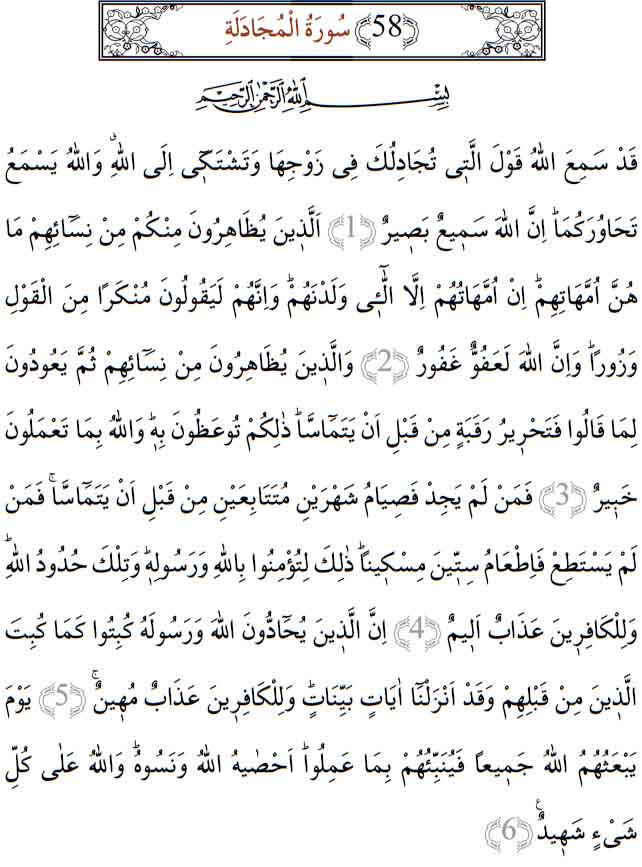 ﴿58﴾ سُورَةُ الْمُجَادَلَةِ
بِسْمِ اللهِ الرَّحْمٰنِ الرَّحِيمِ
قَدْ سَمِعَ اللهُ قَوْلَ الَّتٖى تُجَادِلُكَ فِى زَوْجِهَا وَتَشْتَكٖٓى اِلَى اللهِۗ وَاللهُ يَسْمَعُ
تَحَاوُرَكُمَاۜ اِنَّ اللهَ سَمٖيعٌ بَصٖيرٌ ﴿1﴾ اَلَّذٖينَ يُظَاهِرُونَ مِنْكُمْ مِنْ نِسَٓائِهِمْ مَا
هُنَّ اُمَّهَاتِهِمْۜ اِنْ اُمَّهَاتُهُمْ اِلَّا الّٰٓـٖٔى وَلَدْنَهُمْۜ وَاِنَّهُمْ لَيَقُولُونَ مُنْكَرًا مِنَ الْقَوْلِ
وَزُورًاۜ وَاِنَّ اللهَ لَعَفُوٌّ غَفُورٌ ﴿2﴾ وَالَّذٖينَ يُظَاهِرُونَ مِنْ نِسَٓائِهِمْ ثُمَّ يَعُودُونَ
لِمَا قَالُوا فَتَحْرٖيرُ رَقَبَةٍ مِنْ قَبْلِ اَنْ يَتَمَٓاسَّاۜ ذٰلِكُمْ تُوعَظُونَ بِهٖۜ وَاللهُ بِمَا تَعْمَلُونَ
خَبٖيرٌ ﴿3﴾ فَمَنْ لَمْ يَجِدْ فَصِيَامُ شَهْرَيْنِ مُتَتَابِعَيْنِ مِنْ قَبْلِ اَنْ يَتَمَٓاسَّاۚ فَمَنْ
لَمْ يَسْتَطِعْ فَاِطْعَامُ سِتّٖينَ مِسْكٖينًاۜ ذٰلِكَ لِتُؤْمِنُوا بِاللهِ وَرَسُولِهٖۜ وَتِلْكَ حُدُودُ اللهِۜ
وَلِلْكَافِرٖينَ عَذَابٌ اَلٖيمٌ ﴿4﴾ اِنَّ الَّذٖينَ يُحَٓادُّونَ اللهَ وَرَسُولَهُ كُبِتُوا كَمَا كُبِتَ
الَّذٖينَ مِنْ قَبْلِهِمْ وَقَدْ اَنْزَلْنَٓا اٰيَاتٍ بَيِّنَاتٍۜ وَلِلْكَافِرٖينَ عَذَابٌ مُهٖينٌۚ ﴿5﴾ يَوْمَ
يَبْعَثُهُمُ اللهُ جَمٖيعًا فَيُنَبِّئُهُمْ بِمَا عَمِلُواۜ اَحْصٰيهُ اللهُ وَنَسُوهُۜ وَاللهُ عَلٰى كُلِّ
شَىْءٍ شَهٖيدٌࣖ ﴿6﴾